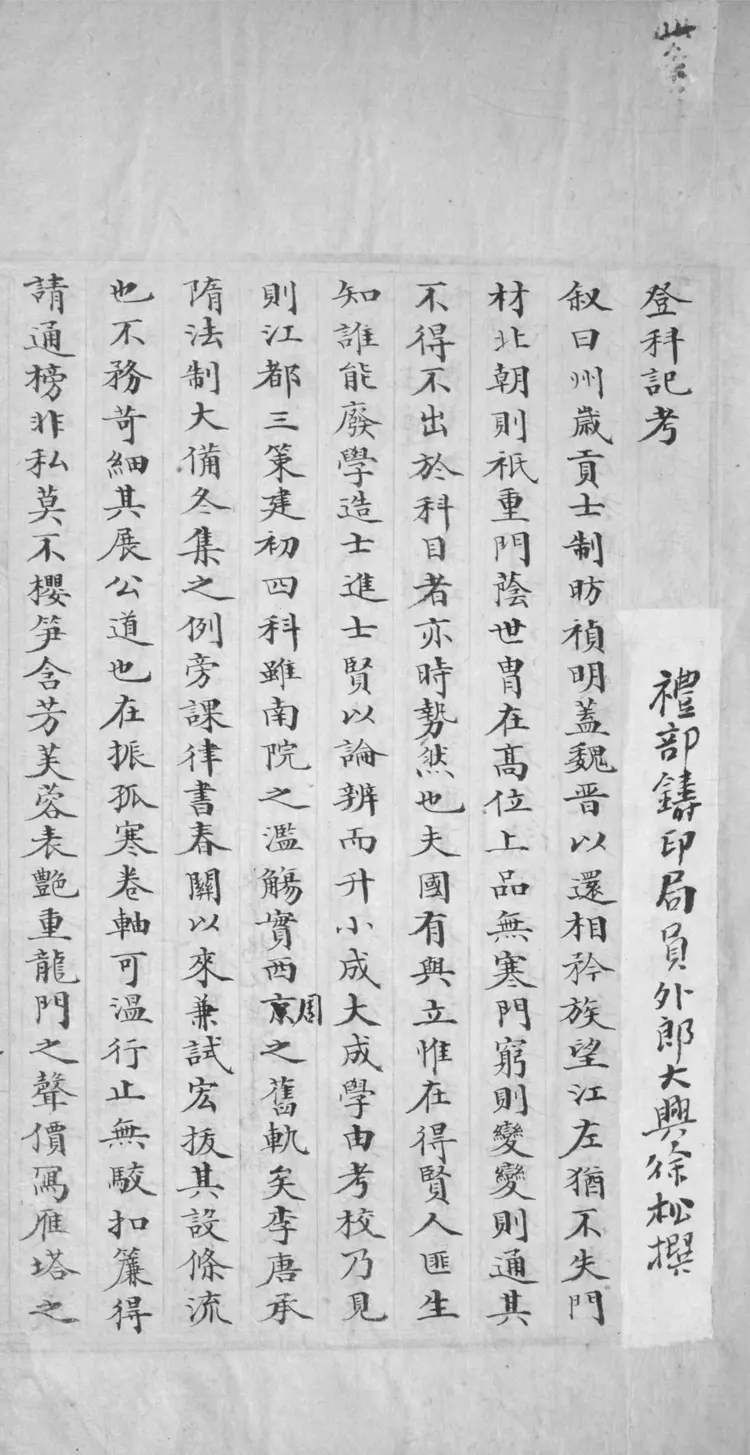 登科記考
禮部鑄印局員外郎大興徐松撰
叙曰州歲貢士制昉禎明蓋魏晋以還相矜族望江左猶不失門
材北朝則祇重門蔭世胄在高位上品無寒門窮則變變則通其
不得不出於科目者亦時勢然也夫國有與立惟在得賢人匪生
知誰能廢學造士進士賢以論辨而升小成大成學由考校乃見
則江都三策建初四科雖南院之濫觴實西京周之舊軌矣李唐承
隋法制大備冬集之例旁課律書春闈以來兼試宏拔其設條流
也不務苛細其展公道也在振孤寒卷軸可溫行止無駮扣簾得
請通榜非私莫不櫻笋含芳芙蓉表艷重龍門之聲價寫雁塔之